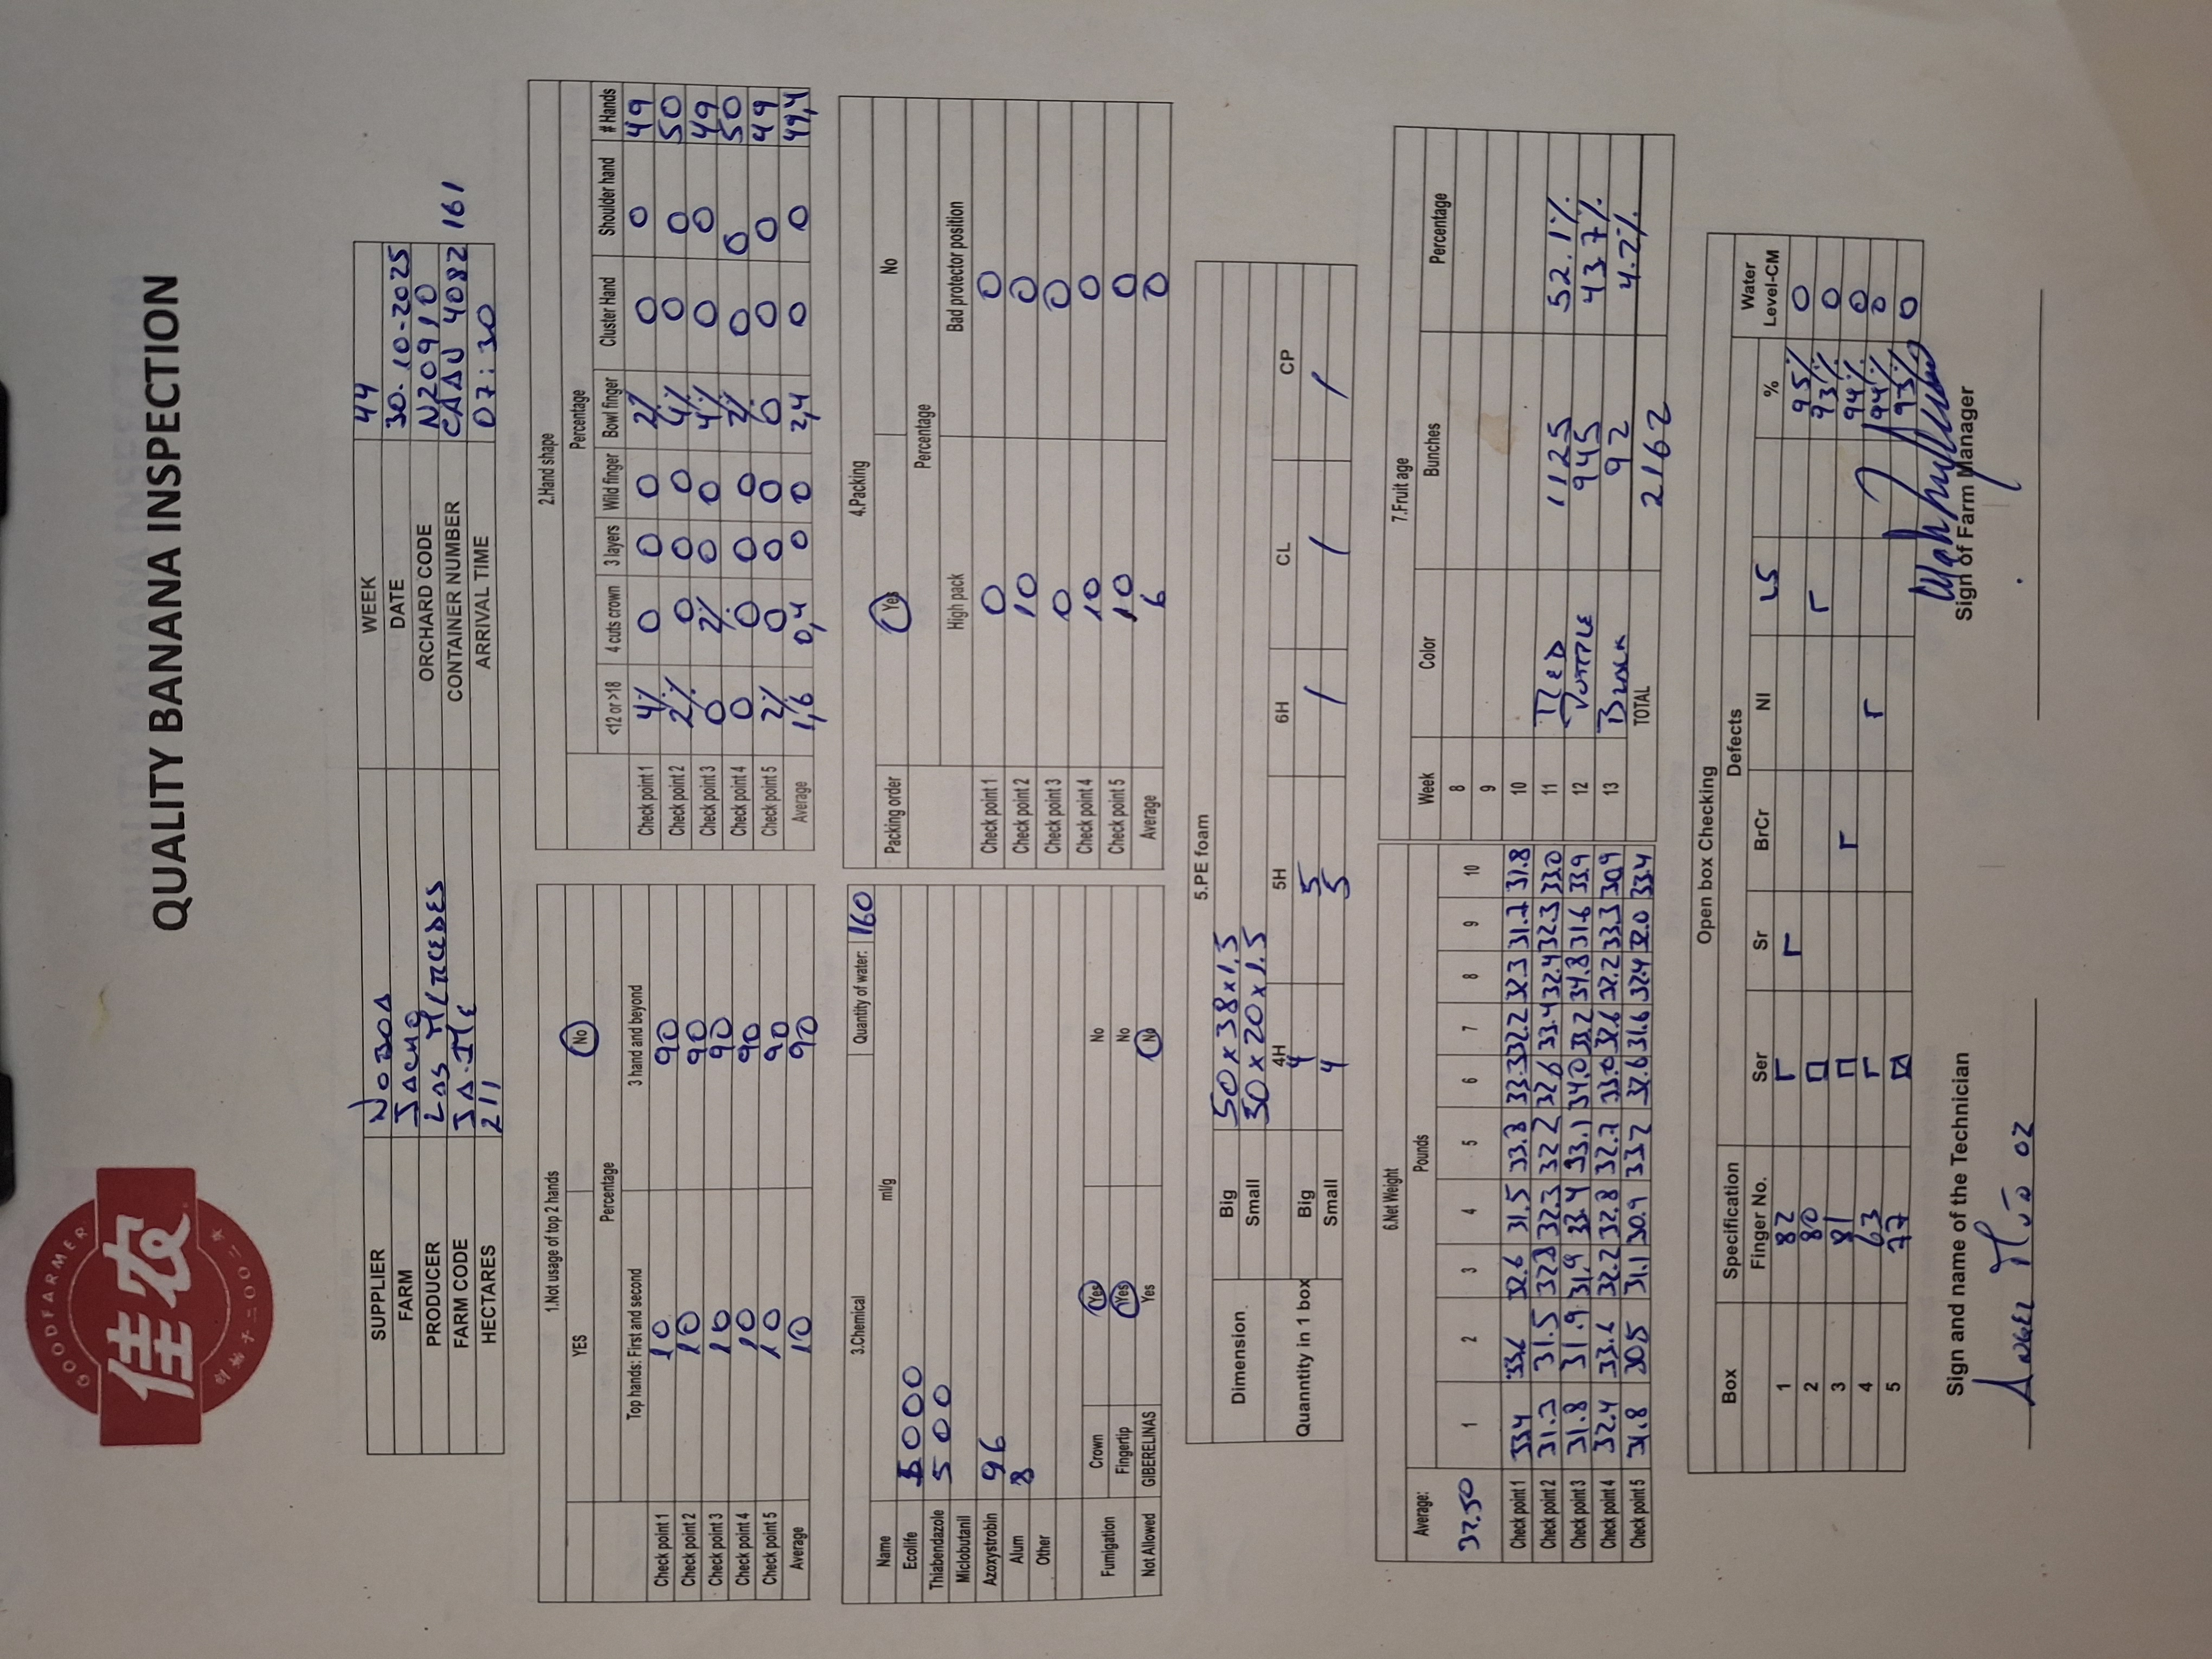 GOODFARMER
佳农
创始于二〇〇二年
QUALITY BANANA INSPECTION
SUPPLIER NOBOA WEEK 44
FARM JACHO DATE 30-10-2025
PRODUCER LAS MERCEDES ORCHARD CODE N20910
FARM CODE CONTAINER NUMBER CAAU 4082 161
HECTARES 211 ARRIVAL TIME 07:30
1.Not usage of top 2 hands
YES No
Percentage
Top hands: First and second 3 hand and beyond
Check point 1 10 90
Check point 2 10 90
Check point 3 10 90
Check point 4 10 90
Check point 5 10 90
Average 10 90
2.Hand shape
Percentage
<12 or >18 4 cuts crown 3 layers Wild finger Bowl finger Cluster Hand Shoulder hand # Hands
Check point 1 4% 0 0 0 2% 0 0 49
Check point 2 2% 0 0 0 4% 0 0 50
Check point 3 0 2% 0 0 4% 0 0 49
Check point 4 0 0 0 0 2% 0 0 50
Check point 5 2% 0 0 0 0 0 0 49
Average 1,6 0,4 0 0 2,4 0 0 49,4
3.Chemical Quantity of water: 160
Name ml/g
Ecolife
Thiabendazole 500
Miclobutanil
Azoxystrobin 96
Alum 8
Other
Fumigation Crown Yes No
Fingertip Yes No
Not Allowed GIBERELINAS Yes No
4.Packing
Packing order Yes No
Percentage
High pack Bad protector position
Check point 1 0 0
Check point 2 10 0
Check point 3 0 0
Check point 4 10 0
Check point 5 10 0
Average 6 0
5.PE foam
Dimension Big 50x38x1.5
Small 50x20x1.5
4H 5H 6H CL CP
Quanntity in 1 box Big 4 5 / / /
Small 4 5
6.Net Weight
Average: Pounds
32.50 1 2 3 4 5 6 7 8 9 10
Check point 1 33.4 33.6 32.6 31.5 33.8 33.3 32.2 32.3 31.7 31.8
Check point 2 31.3 31.5 32.8 32.3 32.2 32.6 33.4 32.4 32.3 33.0
Check point 3 31.8 31.9 31.9 33.4 33.1 34.0 33.2 34.8 31.6 33.9
Check point 4 32.4 33.6 32.2 32.8 32.7 33.0 32.6 32.2 33.3 30.9
Check point 5 31.8 30.5 31.1 30.9 33.2 32.6 31.6 32.4 32.0 33.4
7.Fruit age
Week Color Bunches Percentage
8
9
10
11 RED 1125 52.1%
12 PURPLE 945 43.7%
13 BLACK 92 4.2%
TOTAL 2162
Open box Checking
Box Specification Defects Water Level-CM
Finger No. Ser Sr BrCr NI LS %
1 82 95% 0
2 80 93% 0
3 81 94% 0
4 63 94% 0
5 77 93% 0
Sign and name of the Technician
Sign of Farm Manager
ANGEL MUÑOZ